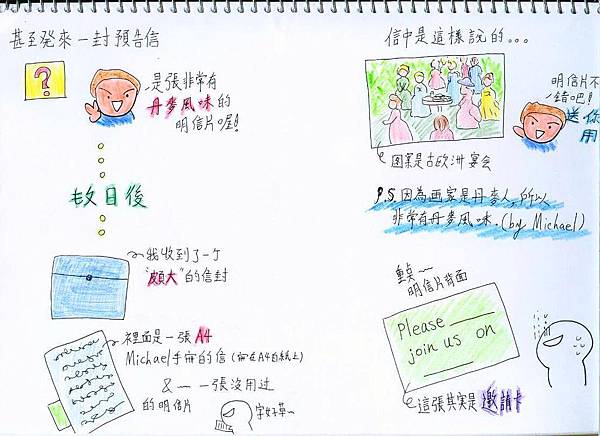 甚至發來一封預告信
?
是張非常有
丹麥風味的
明信片喔!
數日後
我收到了一個
"頗大"的信封
裡面是一張A4
Michael手寫的信(寫在A4白紙上)
& 一張沒用过
的明信片
字好草~
信中是這樣說的...
明信片不
錯吧!
送你
用
圖案是古欧洲宴会
P.S.因為画家是丹麥人,所以
非常有丹麥風味.(by Michael)
重点~~
明信片背面
Please ____
join us on
____
這張其實是邀請卡